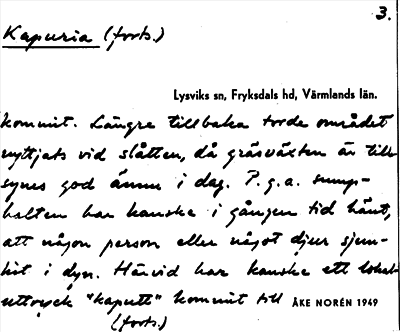 3.
Kapuria (forts.)
Lysviks sn, Fryksdals hd, Värmlands län.
kommit. Längre tillbaka torde området
nyttjats vid slåtten, då gräsväxten är till-
synes god ännu i dag. P.g.a. sump-
halten har kanske i gången tid hänt,
att någon person eller något djur sjun-
kit i dyn. Härvid har kanske ett lokal-
uttryck "kaputt" kommit till ÅKE NORÉN 1949
(forts.)